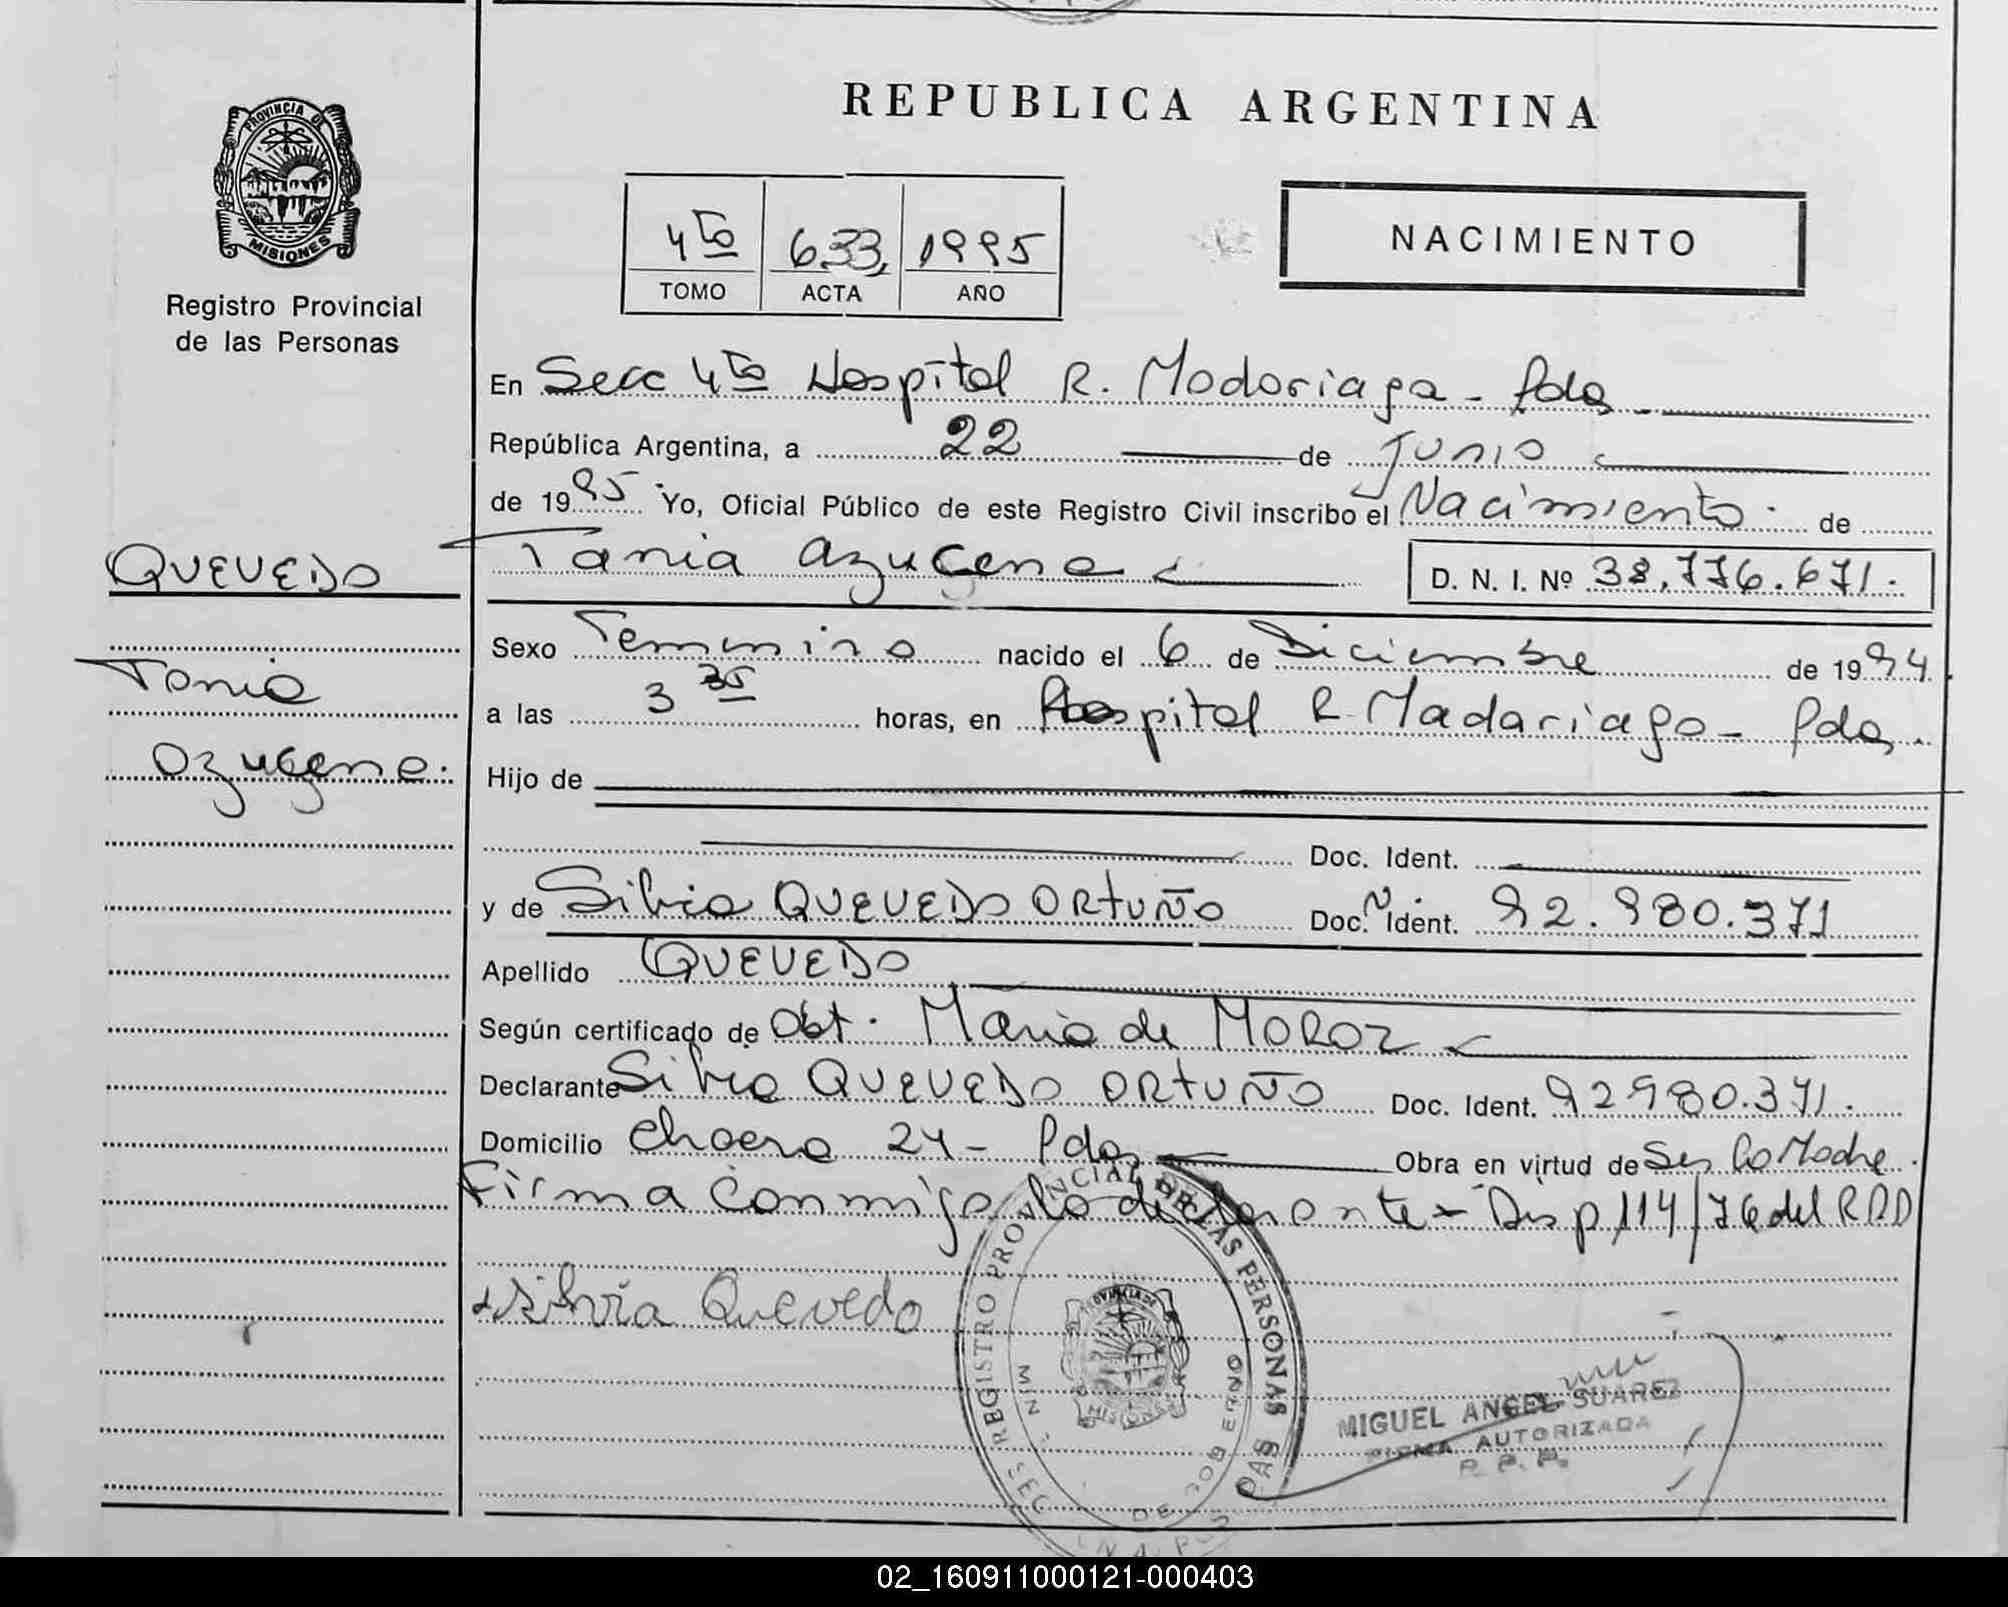 REPUBLICA ARGENTINA
PROVINCIA DE
MISIONES
Registro Provincial
de las Personas
4to 633, 1995
TOMO ACTA AÑO
NACIMIENTO
En Secc 4to Hospital R. Madariaga - Pdas -
República Argentina, a 22 de Junio
de 1995. Yo, Oficial Público de este Registro Civil inscribo el Nacimiento de
QUEVEDO
Tania Azucena
D. N. I. Nº 38.776.671.
Sexo Femenino nacido el 6 de Diciembre de 1994.
Tania
a las 3 35 horas, en Hospital R. Madariaga - Pdas.
Azucena.
Hijo de
Doc. Ident.
y de Silvia QUEVEDO ORTUÑO Doc. Ident. N. 92.980.371
Apellido QUEVEDO
Según certificado de Obt. María de MOROZ
Declarante Silvia QUEVEDO ORTUÑO Doc. Ident. 92980.371.
Domicilio 24 - Pdas Obra en virtud de Ser la Madre.
Firma conmigo la declarante - Disp 114/76 del
Silvia Quevedo
REGISTRO PROVINCIAL DE LAS PERSONAS
PROVINCIA DE
MISIONES
MIN. DE GOBIERNO
MIGUEL ANGEL SUAREZ
FIRMA AUTORIZADA
R. P. P.
02_160911000121-000403